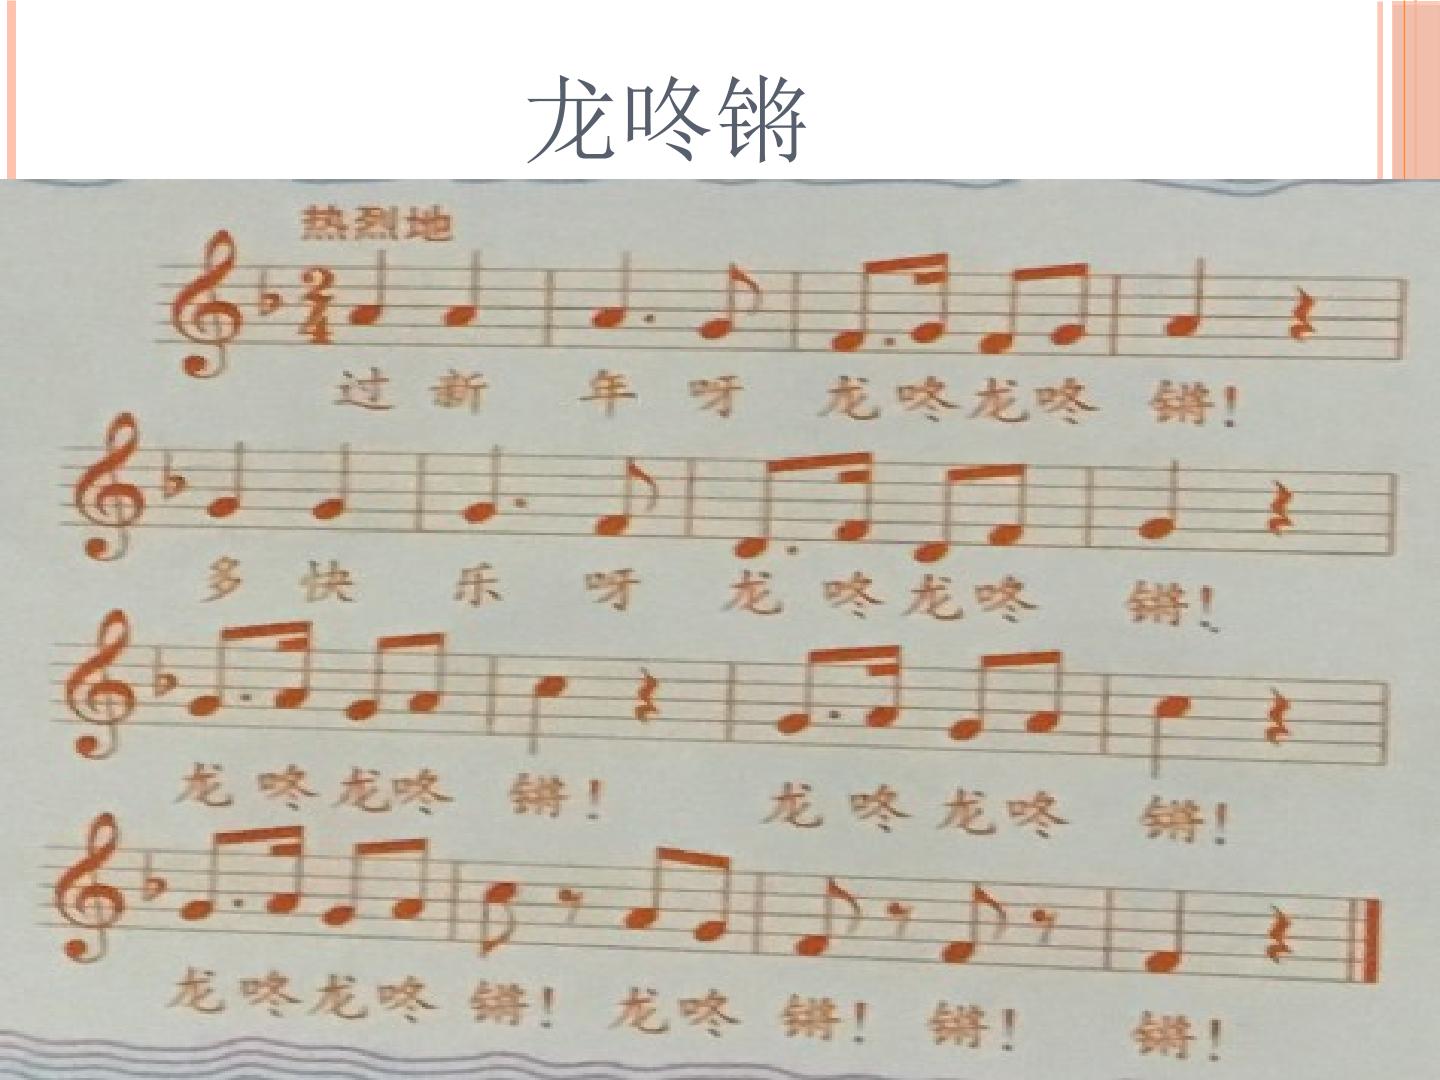 龙咚锵
热烈地
2
4
过 新 年 呀 龙咚龙咚 锵!
多 快 乐 呀 龙 咚龙咚 锵!
龙 咚龙咚 锵! 龙 咚 龙 咚 锵!
龙咚龙咚 锵! 龙 咚 锵! 锵! 锵!